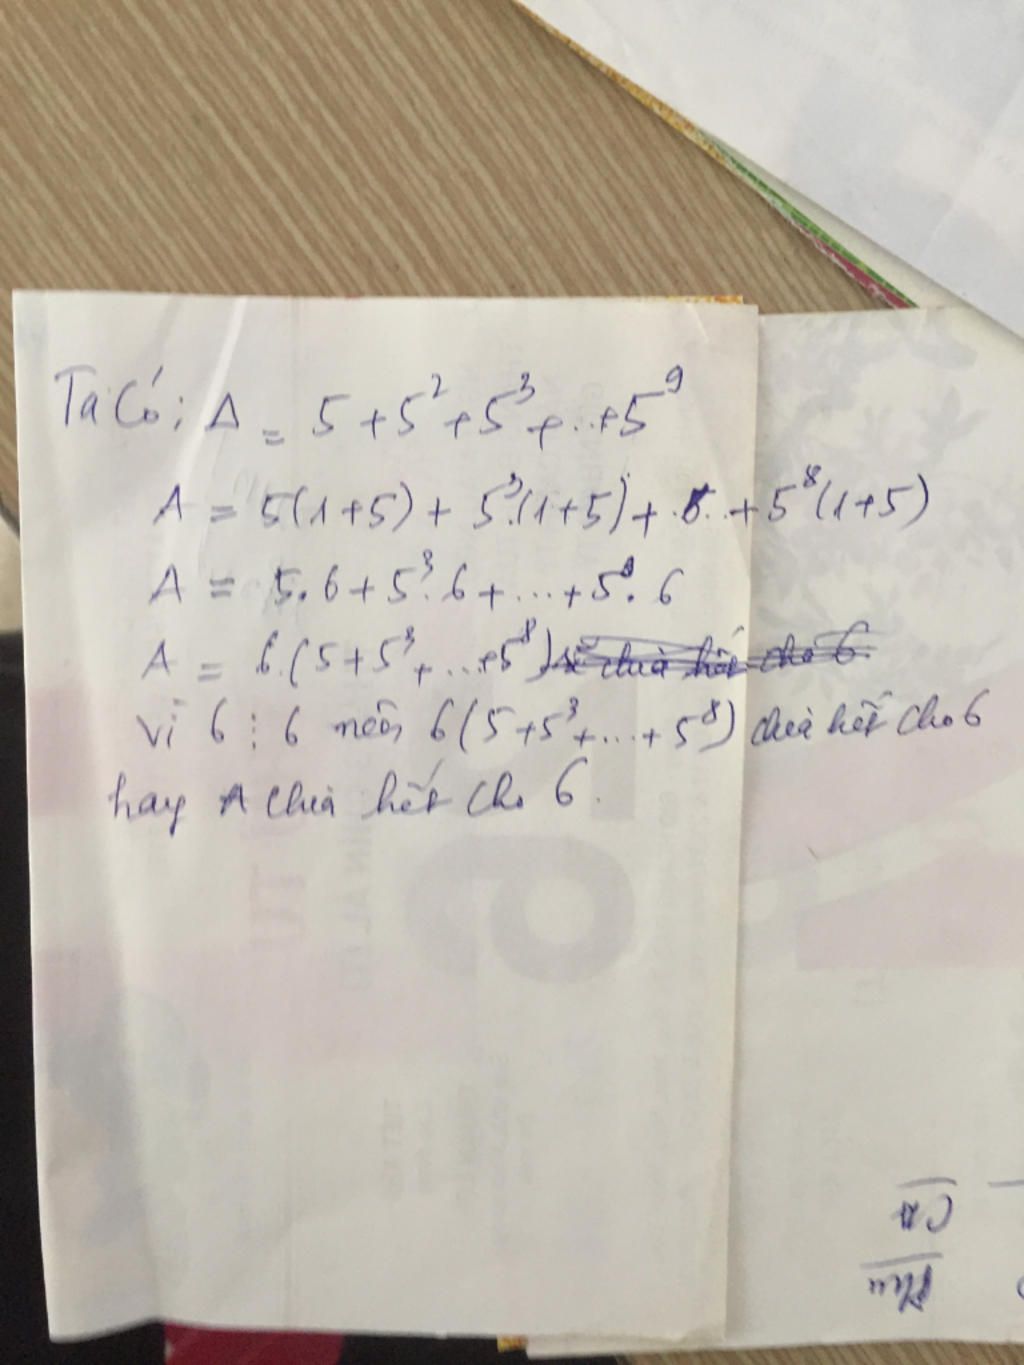 Ta có: A = 5 + 5² + 5³ + ... + 5⁹
A = 5(1+5) + 5³.(1+5) + ... + 5⁸(1+5)
A = 5.6 + 5³.6 + ... + 5⁸.6
A = 6.(5 + 5³ + ... + 5⁸) chia hết cho 6.
Vì 6 ⋮ 6 nên 6(5 + 5³ + ... + 5⁸) chia hết cho 6
hay A chia hết cho 6.